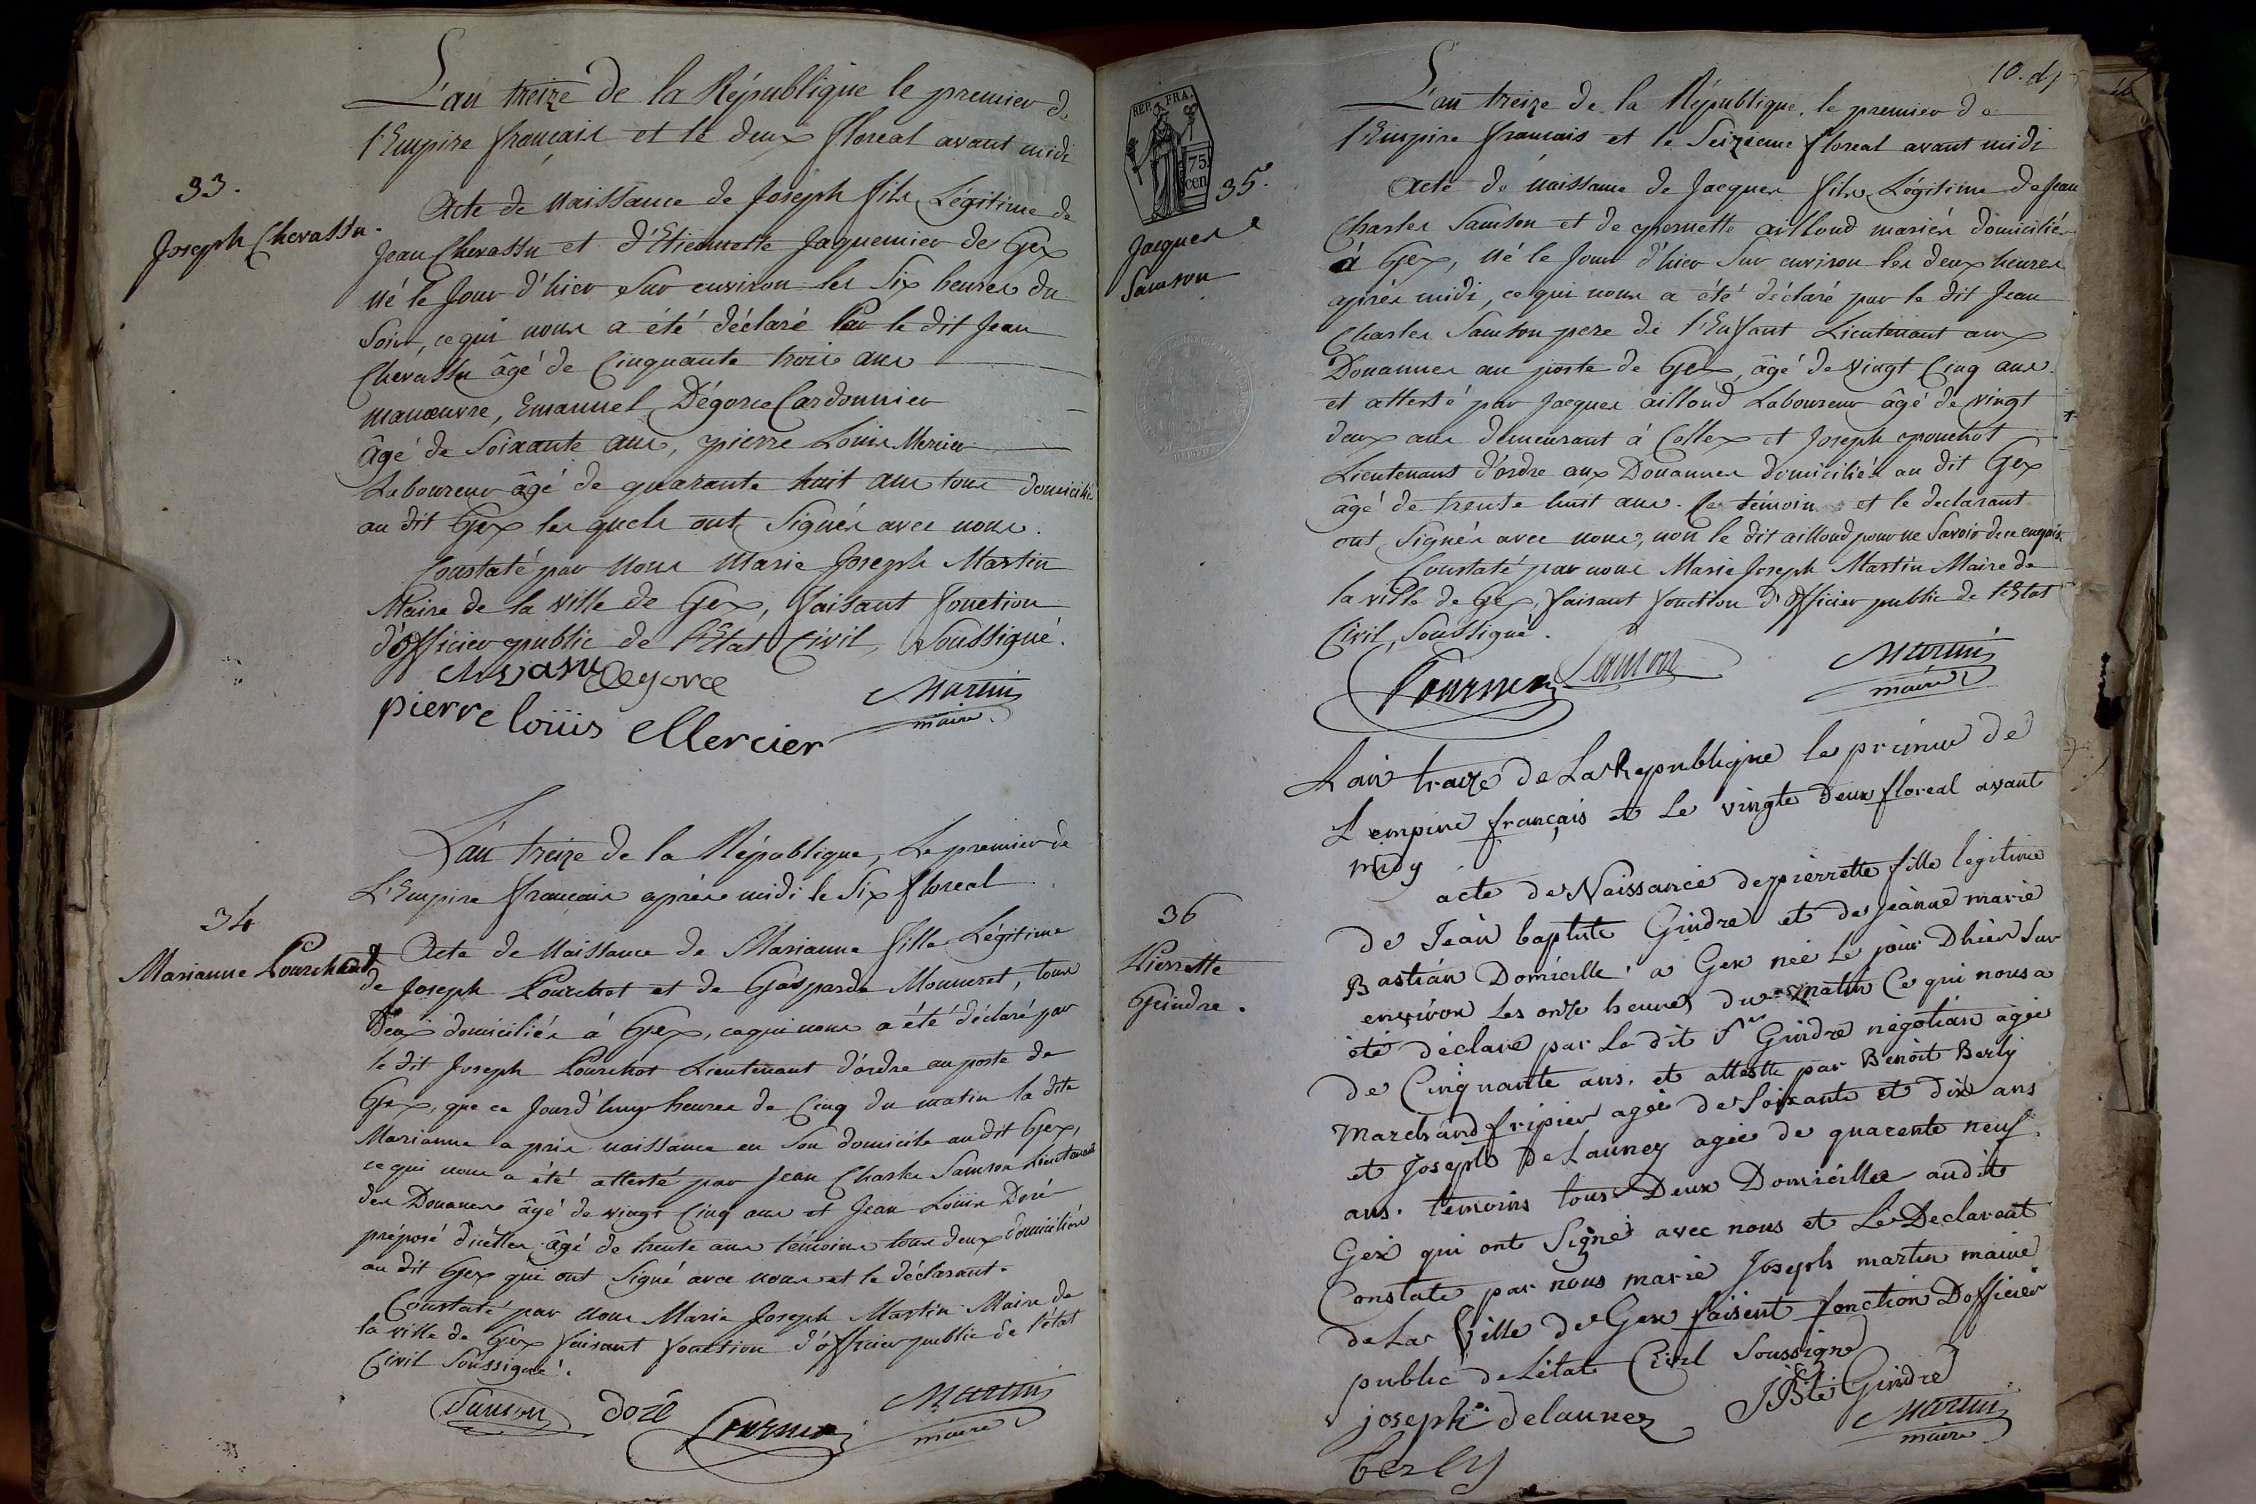 L'an treize de la République le premier de
l'Empire français et le deux floreal avant midi
33.
Joseph Chevassu.
Acte de Naissance de Joseph fils Légitime de
Jean Chevassu et d'Etiennette Jaquemier de Gex
né le Jour d'hier Sur environ les Six heures du
Soir, ce qui nous a été déclaré Par le dit Jean
Chevassu âgé de Cinquante trois ans
manœuvre, Emanuel Dégorce Cardonnier
âgé de Soixante ans, pierre Louis Mercier
Laboureur âgé de quarante huit ans tous domiciliés
au dit Gex les quels ont Signés avec nous.
Constaté par Nous Marie Joseph Martin
Maire de la ville de Gex, faisant fonction
d'officier public de l'Etat Civil, Soussigné.
Degorce
Martin
maire
pierre loüis Mercier
L'an treize de la République, Le premier de
L'Empire français après midi le Six floreal
34
Marianne Pourchot
Acte de Naissance de Marianne fille Légitime
de Joseph Pourchot et de Gasparde Monneret, tous
Deux domiciliés à Gex, ce qui nous a été déclaré par
le dit Joseph Pourchot Lieutenant d'ordre au poste de
Gex, que ce Jourd'huy heures de Cinq du matin la dite
Marianne a pris naissance en Son domicile au dit Gex,
ce qui nous a été attesté par Jean Charles Samson Lieutenant
des Douanes âgé de vingt Cinq ans et Jean Louis Doré
préposé d'icelles, âgé de trente ans témoins tous deux domiciliés
au dit Gex qui ont Signé avec nous et le déclarant.
Constaté par Nous Marie Joseph Martin Maire de
la ville de Gex faisant fonction d'officier public de l'état
Civil Soussigné.
Samson
Martin
maire
10.
REP. FRA.
75
cen
35.
Jacques
Samson
L'an treize de la République, le premier de
l'Empire français et le Seizieme floreal avant midi
Acte de Naissance de Jacques fils Légitime de Jean
Charles Samson et de pernette ailloud mariés domiciliés
à Gex, né le Jour d'hier Sur environ les deux heures
après midi, ce qui nous a été déclaré par le dit Jean
Charles Samson pere de l'Enfant Lieutenant aux
Douannes au poste de Gex, âgé de vingt Cinq ans
et attesté par Jacques ailloud Laboureur âgé de vingt
deux ans demeurant à Collex et Joseph pourchot
Lieutenant d'ordre aux Douannes domiciliés au dit Gex
âgé de trente huit ans. Ce témoin et le declarant
ont Signés avec nous, non le dit ailloud pour ne Savoir de ce enquis.
Constaté par nous Marie Joseph Martin Maire de
la ville de Gex, faisant fonction d'officier public de l'Etat
Civil, Soussigné.
Samson
Martin
maire
L'an traize de La Republique le primier de
L'empire français et Le vingte deux floreal avant
midy
36
Pierrette
Guindre.
acte de Naissance de pierrette fille legitime
de Jean baptiste Gindre et de Jeanne marie
Bastian Domicille a Gex née Le jour Dhier Sur
environ Les onze heures du matin Ce qui nous a
été déclaré par Le dit Sr Guindre négotian agée
de Cinquante ans. et atteste par Benoit Berly
Marchand fripier agée de Soixante et dix ans
et Joseph DeLauney agée de quarente neuf
ans. temoins tous Deux Domicillée audit
Gex qui ont Signé avec nous et Le Declarent
Constate par nous marie Joseph martin maire
de La Ville de Gex faisent fonction Dofficier
public de Létat Civil Soussigné
joseph delauney
JBte Gindre
Martin
maire
berly